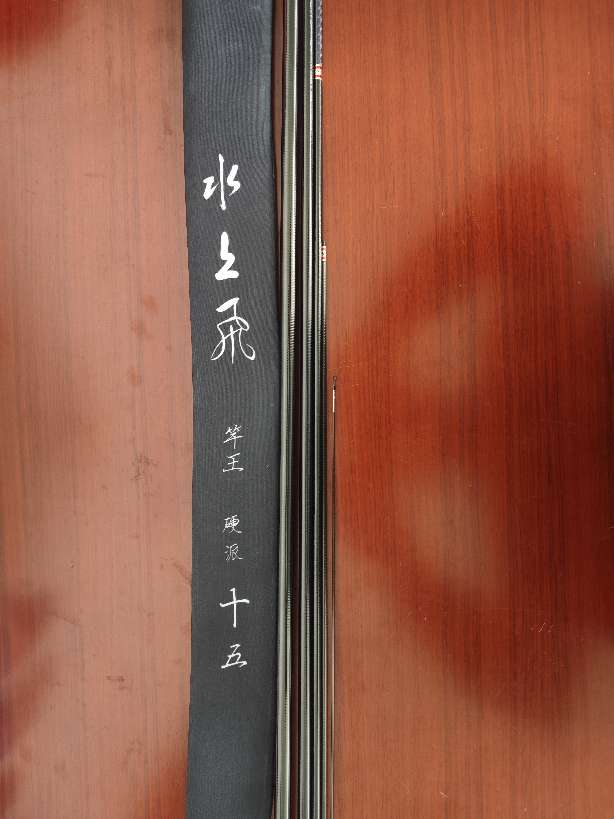 水上飛
竿王 硬派 十五